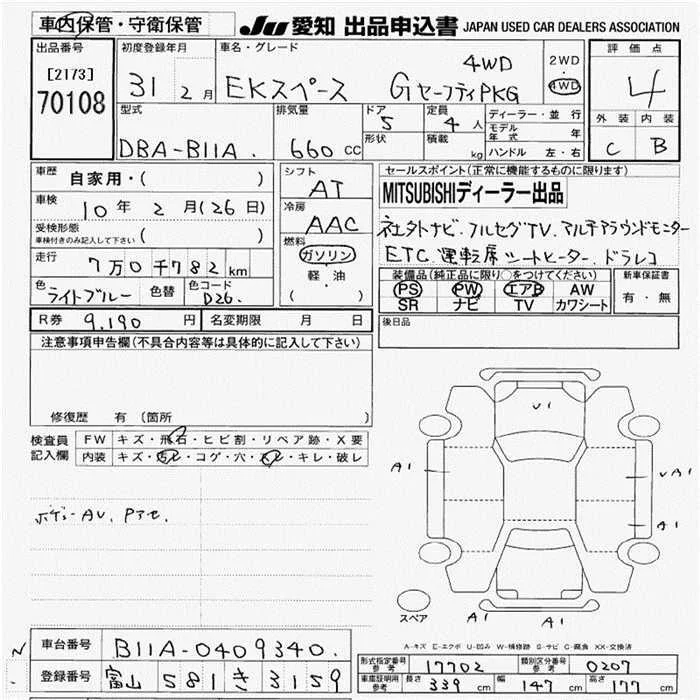 車内保管・守衛保管 JU 愛知 出品申込書 JAPAN USED CAR DEALERS ASSOCIATION
出品番号 初度登録年月 車名・グレード 評価点
[2173] 31 2月 EKスペース GセーフティPKG 4WD 2WD・4WD 4
70108
型式 排気量 ドア 定員 ディーラー・並行 外装 内装
DBA-B11A. 660 CC 5 4人 モデル年式 年 C B
形状 積載 kg ハンドル 左・右
車歴 自家用・( ) シフト AT セールスポイント(正常に機能するものに限ります)
車検 10年2月(26日) 冷房 AAC MITSUBISHIディーラー出品
受検形態 車検付きのみ記入して下さい ( ) 燃料 ガソリン 軽・油 ( )
走行 7万0千782km
色 ライトブルー 色替 色コード D26.
フルセグTV. マルチアラウンドモニター
ETC. 運転席シートヒーター. ドラレコ
装備品(純正品に限り○をつけてください) 新車保証書
PS PW エアB AW 有・無
SR ナビ TV カワシート
R券 9.190円 名変期限 月 日 後日品
注意事項申告欄(不具合内容等は具体的に記入して下さい)
修復歴 有(箇所 )
検査員記入欄 FW キズ・飛石・ヒビ割・リペア跡・X要
内装 キズ・汚レ・コゲ・穴・スレ・キレ・破レ
ボデーAU. Pアセ.
U1
A1
UA1
A1
A1
A1
スペア
A-キズ E-エクボ U-凹み W-補修跡 S-サビ C-腐食 XX-交換済
車台番号 B11A-0409340.
登録番号 富山 581 き 3159
形式指定番号 参考 17702 類別区分番号 参考 0207
車庫証明用 参考 長さ 339cm 幅 147cm 高さ 177cm